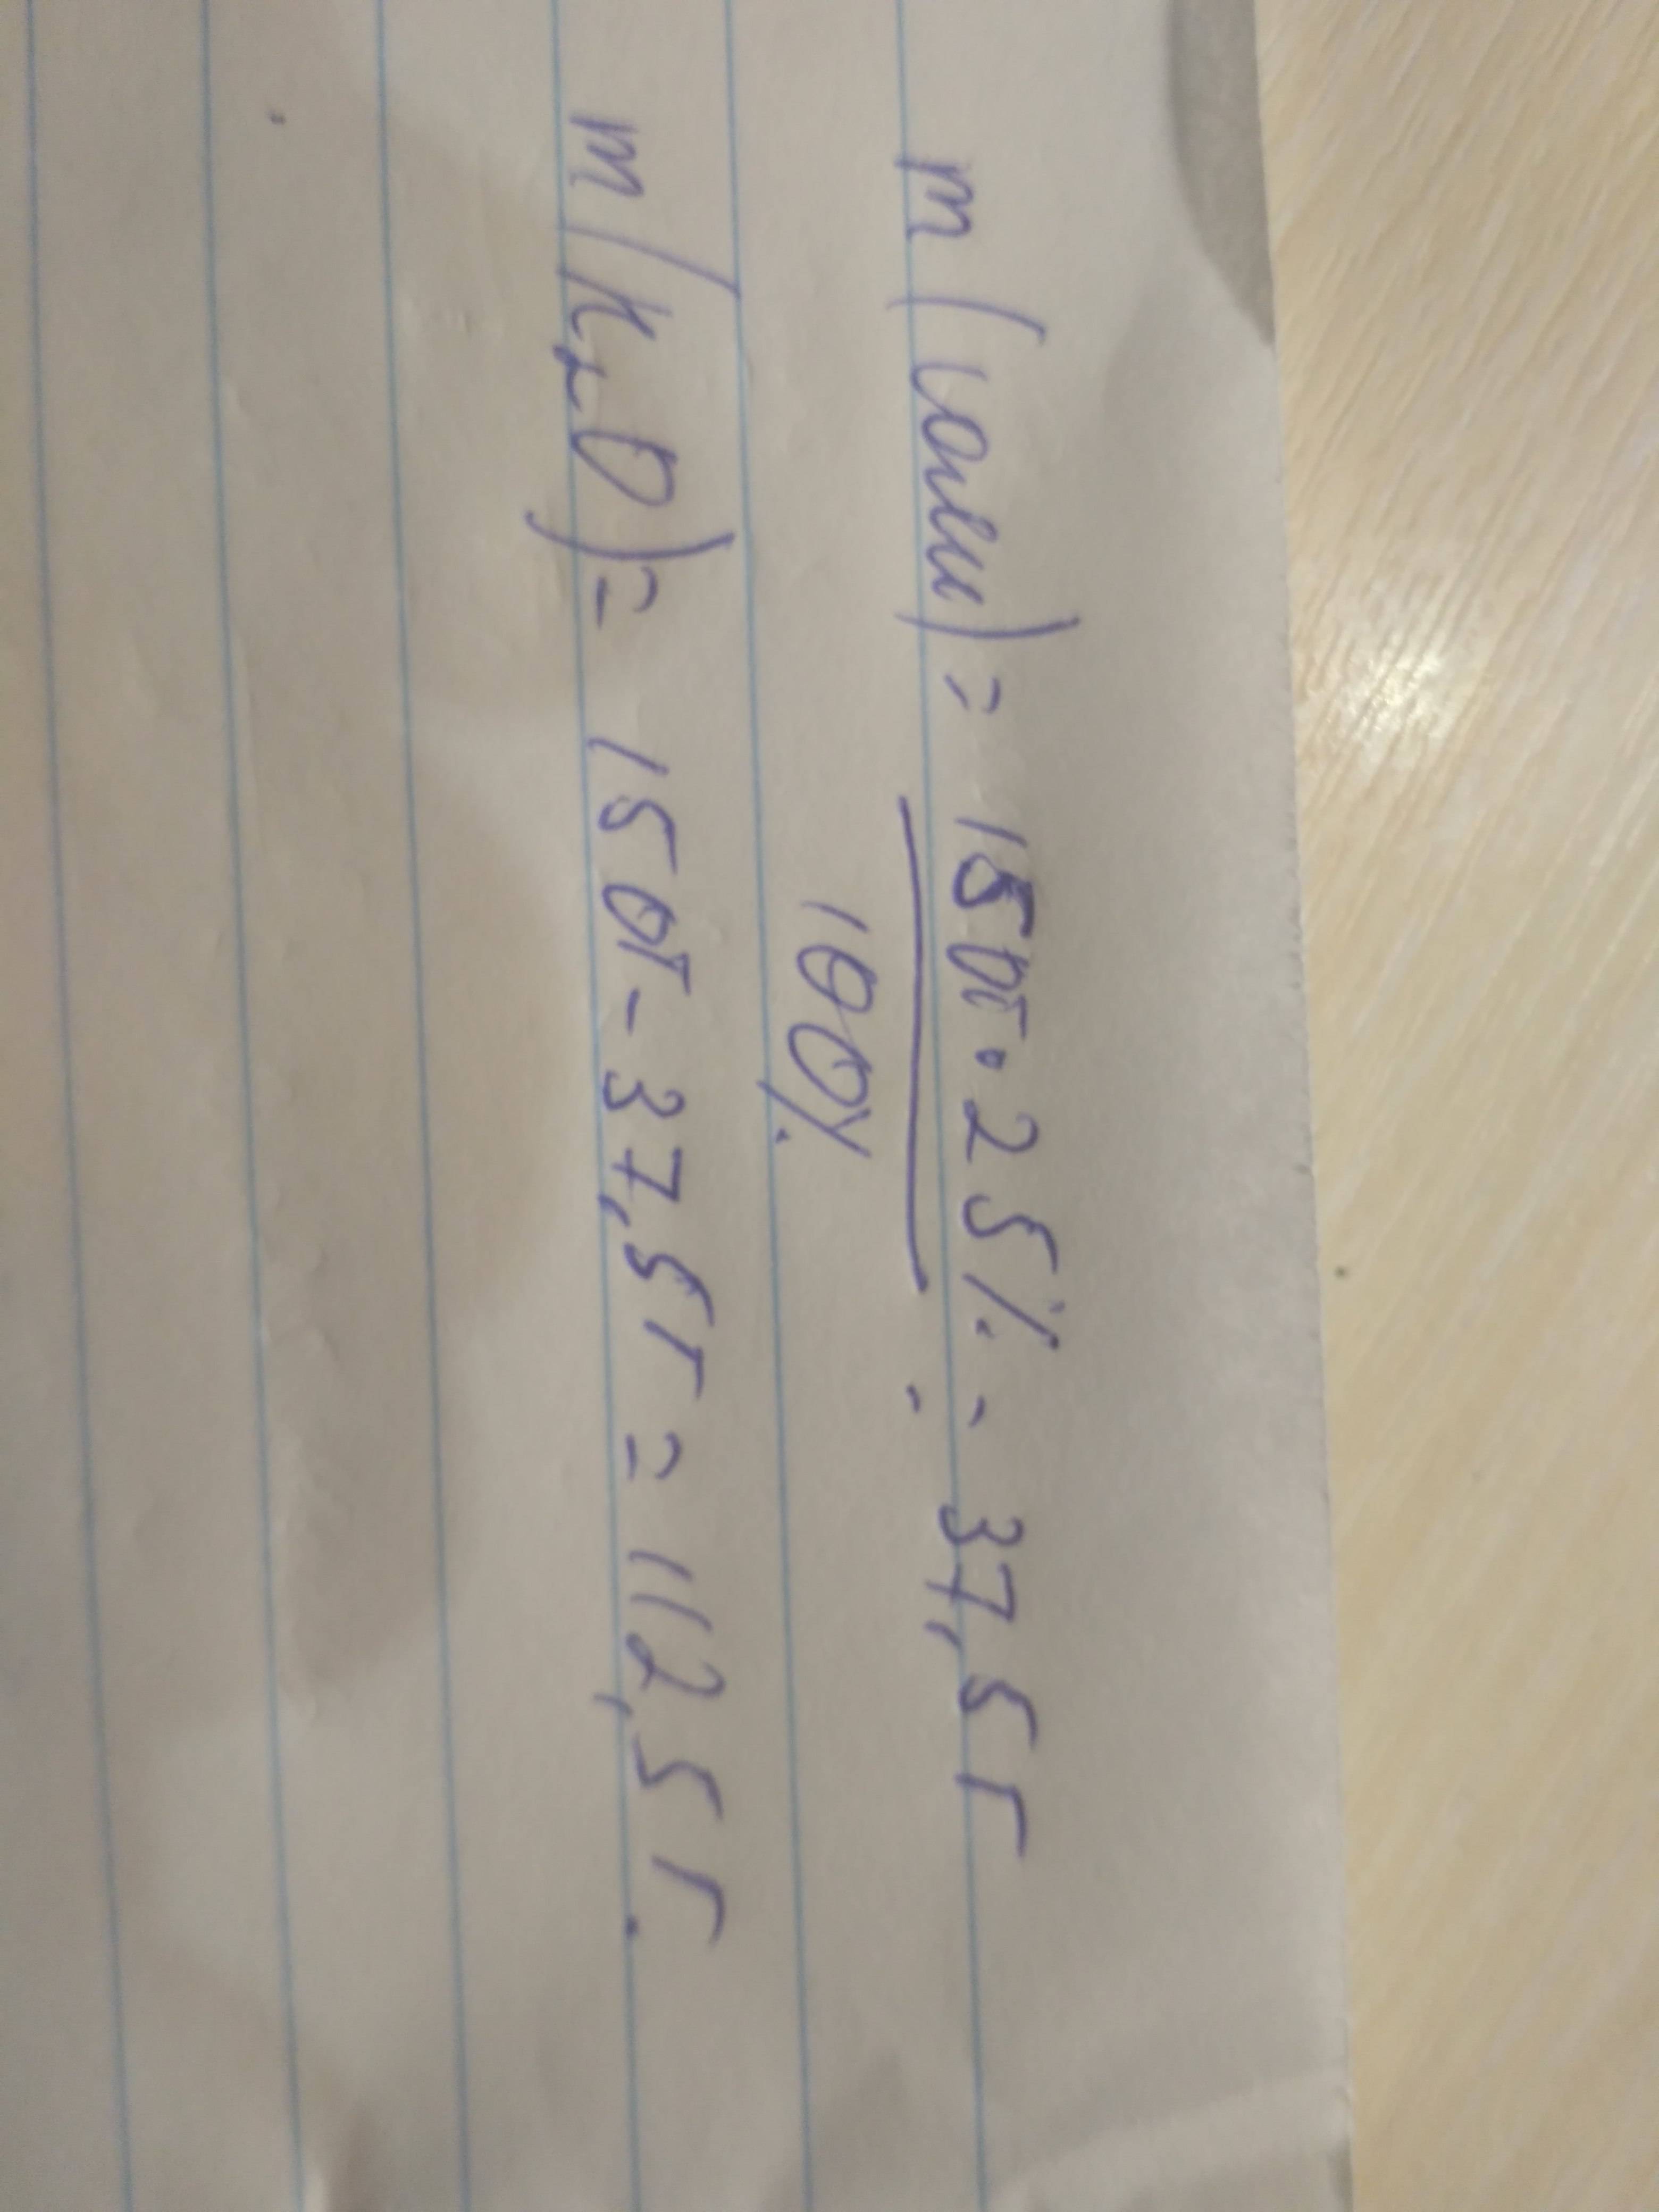 m (соли) = 150г · 25% = 37,5 г
100%
m (H₂O) = 150г - 37,5г = 112,5 г.